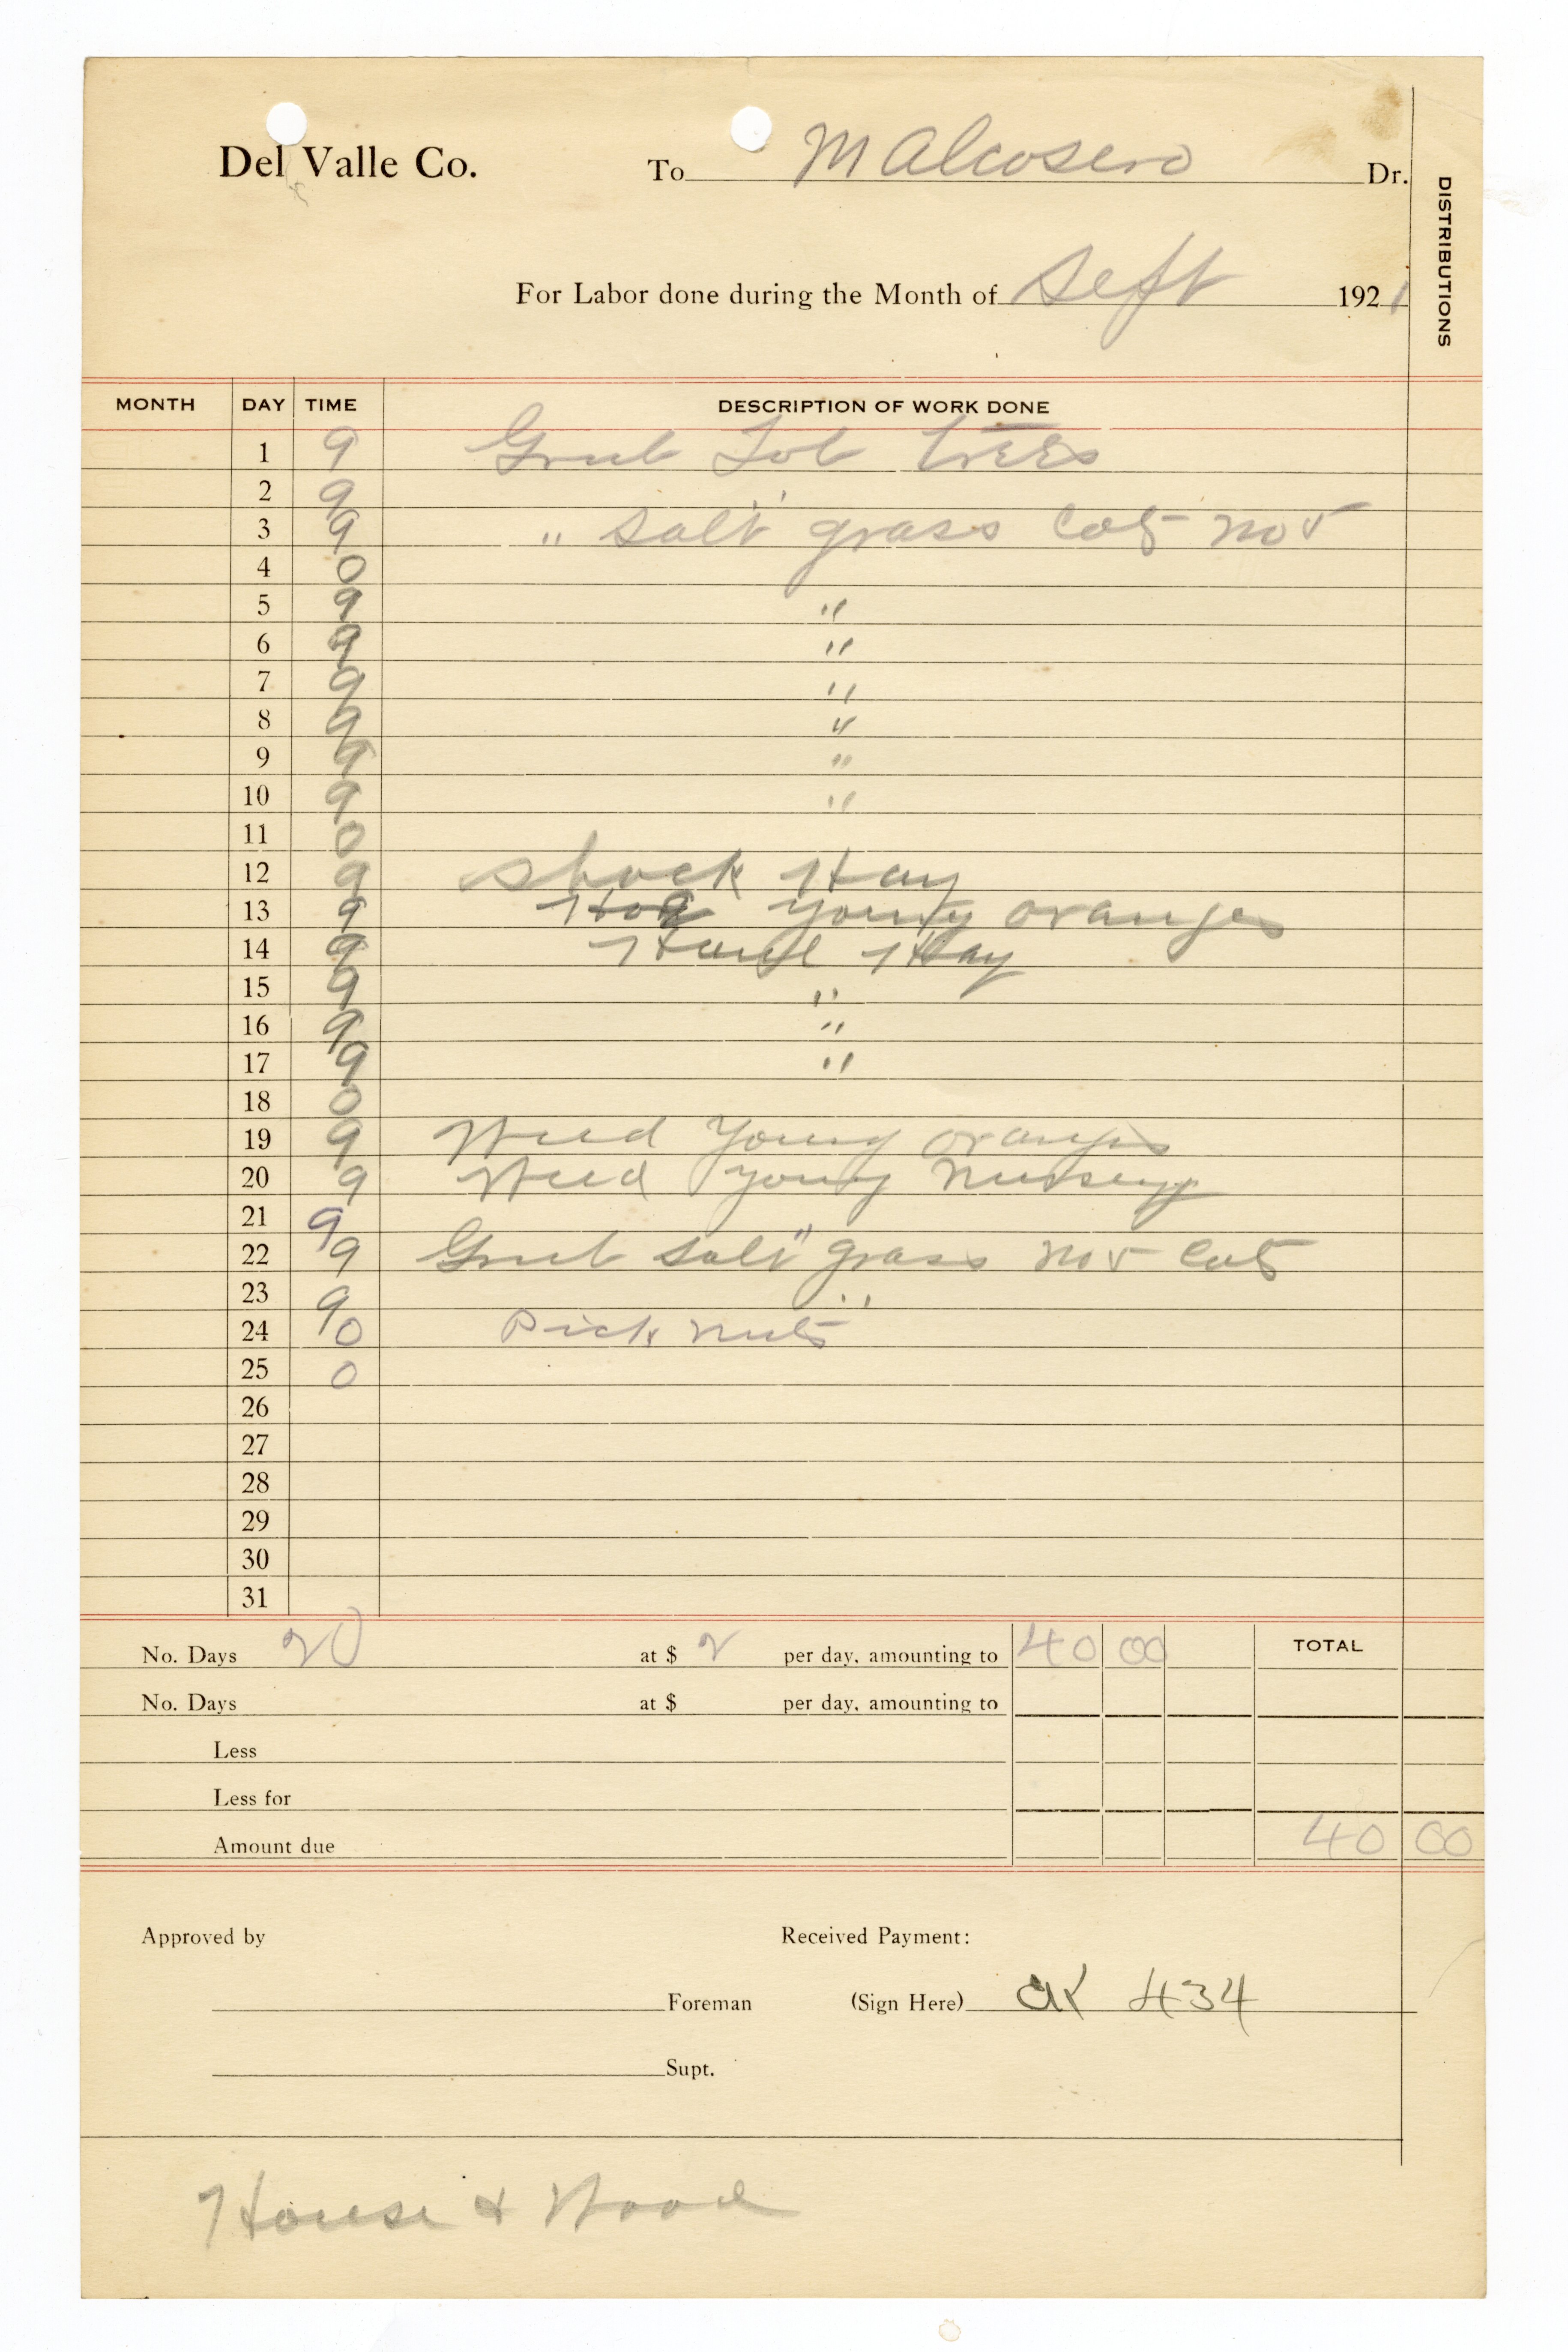 Del Valle Co. To M Alcosero Dr.
DISTRIBUTIONS
For Labor done during the Month of Sept 1921
MONTH DAY TIME DESCRIPTION OF WORK DONE
1 9 Grub Tob trees
2 9 "
3 9 " salt grass Cots No 5
4 0
5 9 "
6 9 "
7 9 "
8 9 "
9 9 "
10 9 "
11 0
12 9 Shock Hay
13 9 Hoe young oranges
14 9 Haul Hay
15 9 "
16 9 "
17 9 "
18 0
19 9 Weed Young oranges
20 9 Weed young Nursery
21 9
22 9 Grub salt grass No 5 Cots
23 9 "
24 0 Pick nuts
25 0
26
27
28
29
30
31
No. Days 20 at $ 2 per day, amounting to 40 00 TOTAL
No. Days at $ per day, amounting to
Less
Less for
Amount due 40 00
Approved by Received Payment:
Foreman (Sign Here) CK 434
Supt.
House & Wood